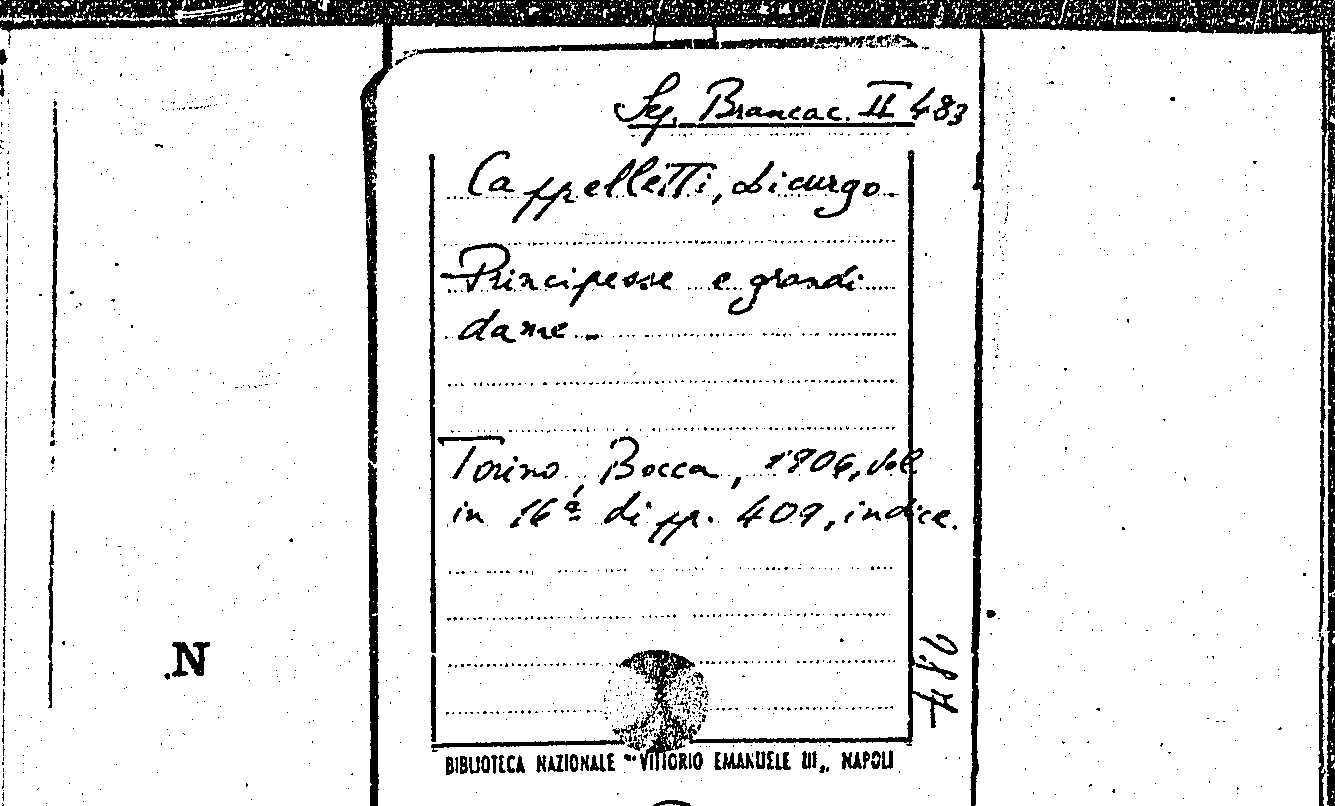 Seg. Brancac. II 483
Cappelletti, Licurgo.
Principesse e grandi
dame.
Torino, Bocca, 1906, vol.
in 16º di pp. 409, indice.
486
N
BIBLIOTECA NAZIONALE "VITTORIO EMANUELE III„ NAPOLI